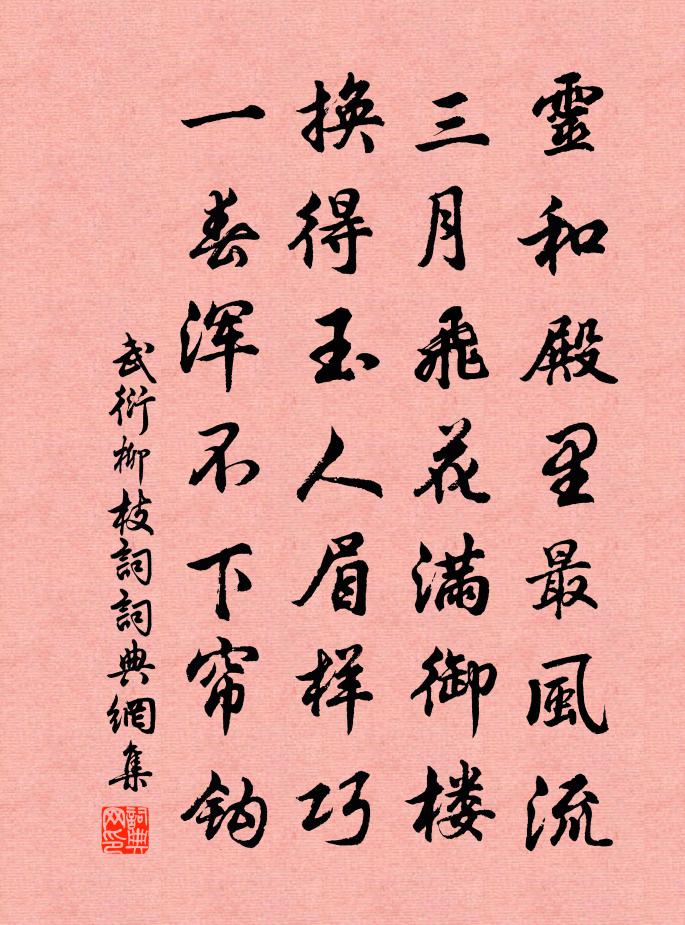 靈和殿里最風流
三月飛花滿御楼
換得玉人眉样巧
一春浑不下帘鈎
武衍柳枝詞詞典網集
詞典网印